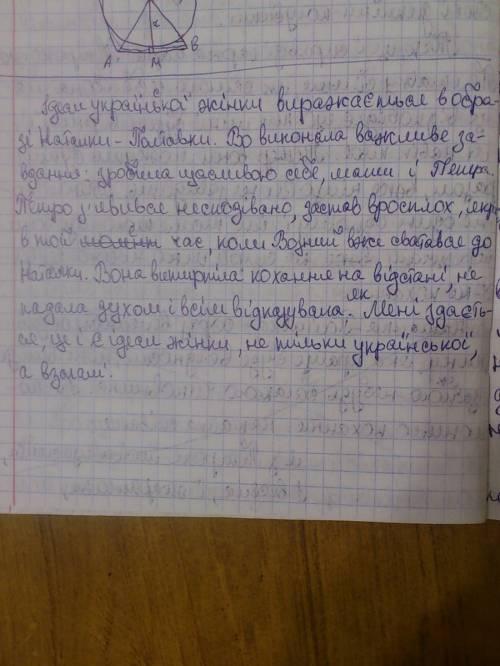 x
A M B
Ідеал української жінки виражається в обра-
зі Наталки-Полтавки. Во виконала важливе за-
вдання: зробила щасливою себе, маму і Петра.
Петро з'явився несподівано, застав вросплох, якраз
в той момент час, коли Возний вже сватався до
Наталки. Вона витерпіла кохання на відстані, не
падала духом і всім відказувала. Як Мені здаєть-
ся це і є ідеал жінки, не тільки української,
а взагалі.